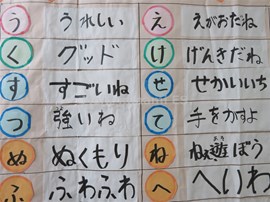 う うれしい え えがおだね
く グッド け げんきだね
す すごいね せ せかいいち
つ 強いね て 手をかすよ
ぬ ぬくもり ね ねぇ遊ぼう
ふ ふわふわ へ へいわ